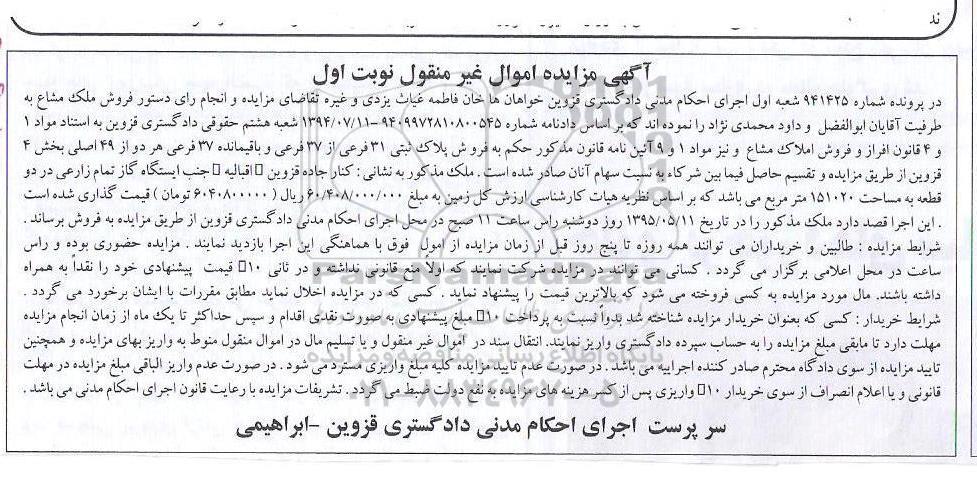 ند
آگهی مزایده اموال غیر منقول نوبت اول
در پرونده شماره ۹۴۱۴۲۵ شعبه اول اجرای احکام مدنی دادگستری قزوین خواهان ها خان فاطمه غیاث یزدی و غیره تقاضای مزایده و انجام رای دستور فروش ملک مشاع به
طرفیت آقایان ابوالفضل و داود محمدی نژاد را نموده اند که بر اساس دادنامه شماره ۹۴۰۹۹۷۲۸۱۰۸۰۰۵۴۵-۱۳۹۴/۰۷/۱۱ شعبه هشتم حقوقی دادگستری قزوین به استناد مواد ۱
و ۴ قانون افراز و فروش املاک مشاع و نیز مواد ۱ و ۹ آئین نامه قانون مذکور حکم به فروش پلاک ثبتی ۳۱ فرعی از ۳۷ فرعی و باقیمانده ۳۷ فرعی هر دو از ۴۹ اصلی بخش ۴
قزوین از طریق مزایده و تقسیم حاصل فیما بین شرکاء به نسبت سهام آنان صادر شده است . ملک مذکور به نشانی : کنار جاده قزوین □ اقبالیه □ جنب ایستگاه گاز تمام زارعی در دو
قطعه به مساحت ۱۵۱۰۲۰ متر مربع می باشد که بر اساس نظریه هیات کارشناسی ارزش کل زمین به مبلغ ۶۰/۴۰۸/۰۰۰/۰۰۰ ریال ( ۶۰۴۰۸۰۰۰۰۰ تومان ) قیمت گذاری شده است
. این اجرا قصد دارد ملک مذکور را در تاریخ ۱۳۹۵/۰۵/۱۱ روز دوشنبه راس ساعت ۱۱ صبح در محل اجرای احکام مدنی دادگستری قزوین از طریق مزایده به فروش برساند .
شرایط مزایده : طالبین و خریداران می توانند همه روزه تا پنج روز قبل از زمان مزایده از اموال فوق با هماهنگی این اجرا بازدید نمایند . مزایده حضوری بوده و راس
ساعت در محل اعلامی برگزار می گردد . کسانی می توانند در مزایده شرکت نمایند که اولاً منع قانونی نداشته و در ثانی ۱۰□ قیمت پیشنهادی خود را نقداً به همراه
داشته باشند. مال مورد مزایده به کسی فروخته می شود که بالاترین قیمت را پیشنهاد نماید . کسی که در مزایده اخلال نماید مطابق مقررات با ایشان برخورد می گردد .
شرایط خریدار : کسی که بعنوان خریدار مزایده شناخته شد بدواً نسبت به پرداخت ۱۰□ مبلغ پیشنهادی به صورت نقدی اقدام و سپس حداکثر تا یک ماه از زمان انجام مزایده
مهلت دارد تا مابقی مبلغ مزایده را به حساب سپرده دادگستری واریز نمایند. انتقال سند در اموال غیر منقول و یا تسلیم مال در اموال منقول منوط به واریز بهای مزایده و همچنین
تایید مزایده از سوی دادگاه محترم صادر کننده اجراییه می باشد . در صورت عدم تایید مزایده کلیه مبلغ واریزی مسترد می شود . در صورت عدم واریز الباقی مبلغ مزایده در مهلت
قانونی و یا اعلام انصراف از سوی خریدار ۱۰□ واریزی پس از کسر هزینه های مزایده به نفع دولت ضبط می گردد . تشریفات مزایده با رعایت قانون اجرای احکام مدنی می باشد .
سر پرست اجرای احکام مدنی دادگستری قزوین -ابراهیمی
پایگاه اطلاع رسانی مناقصه و مزایده
۰۲۱-۸۸۳۴۹۶۷۰-۵